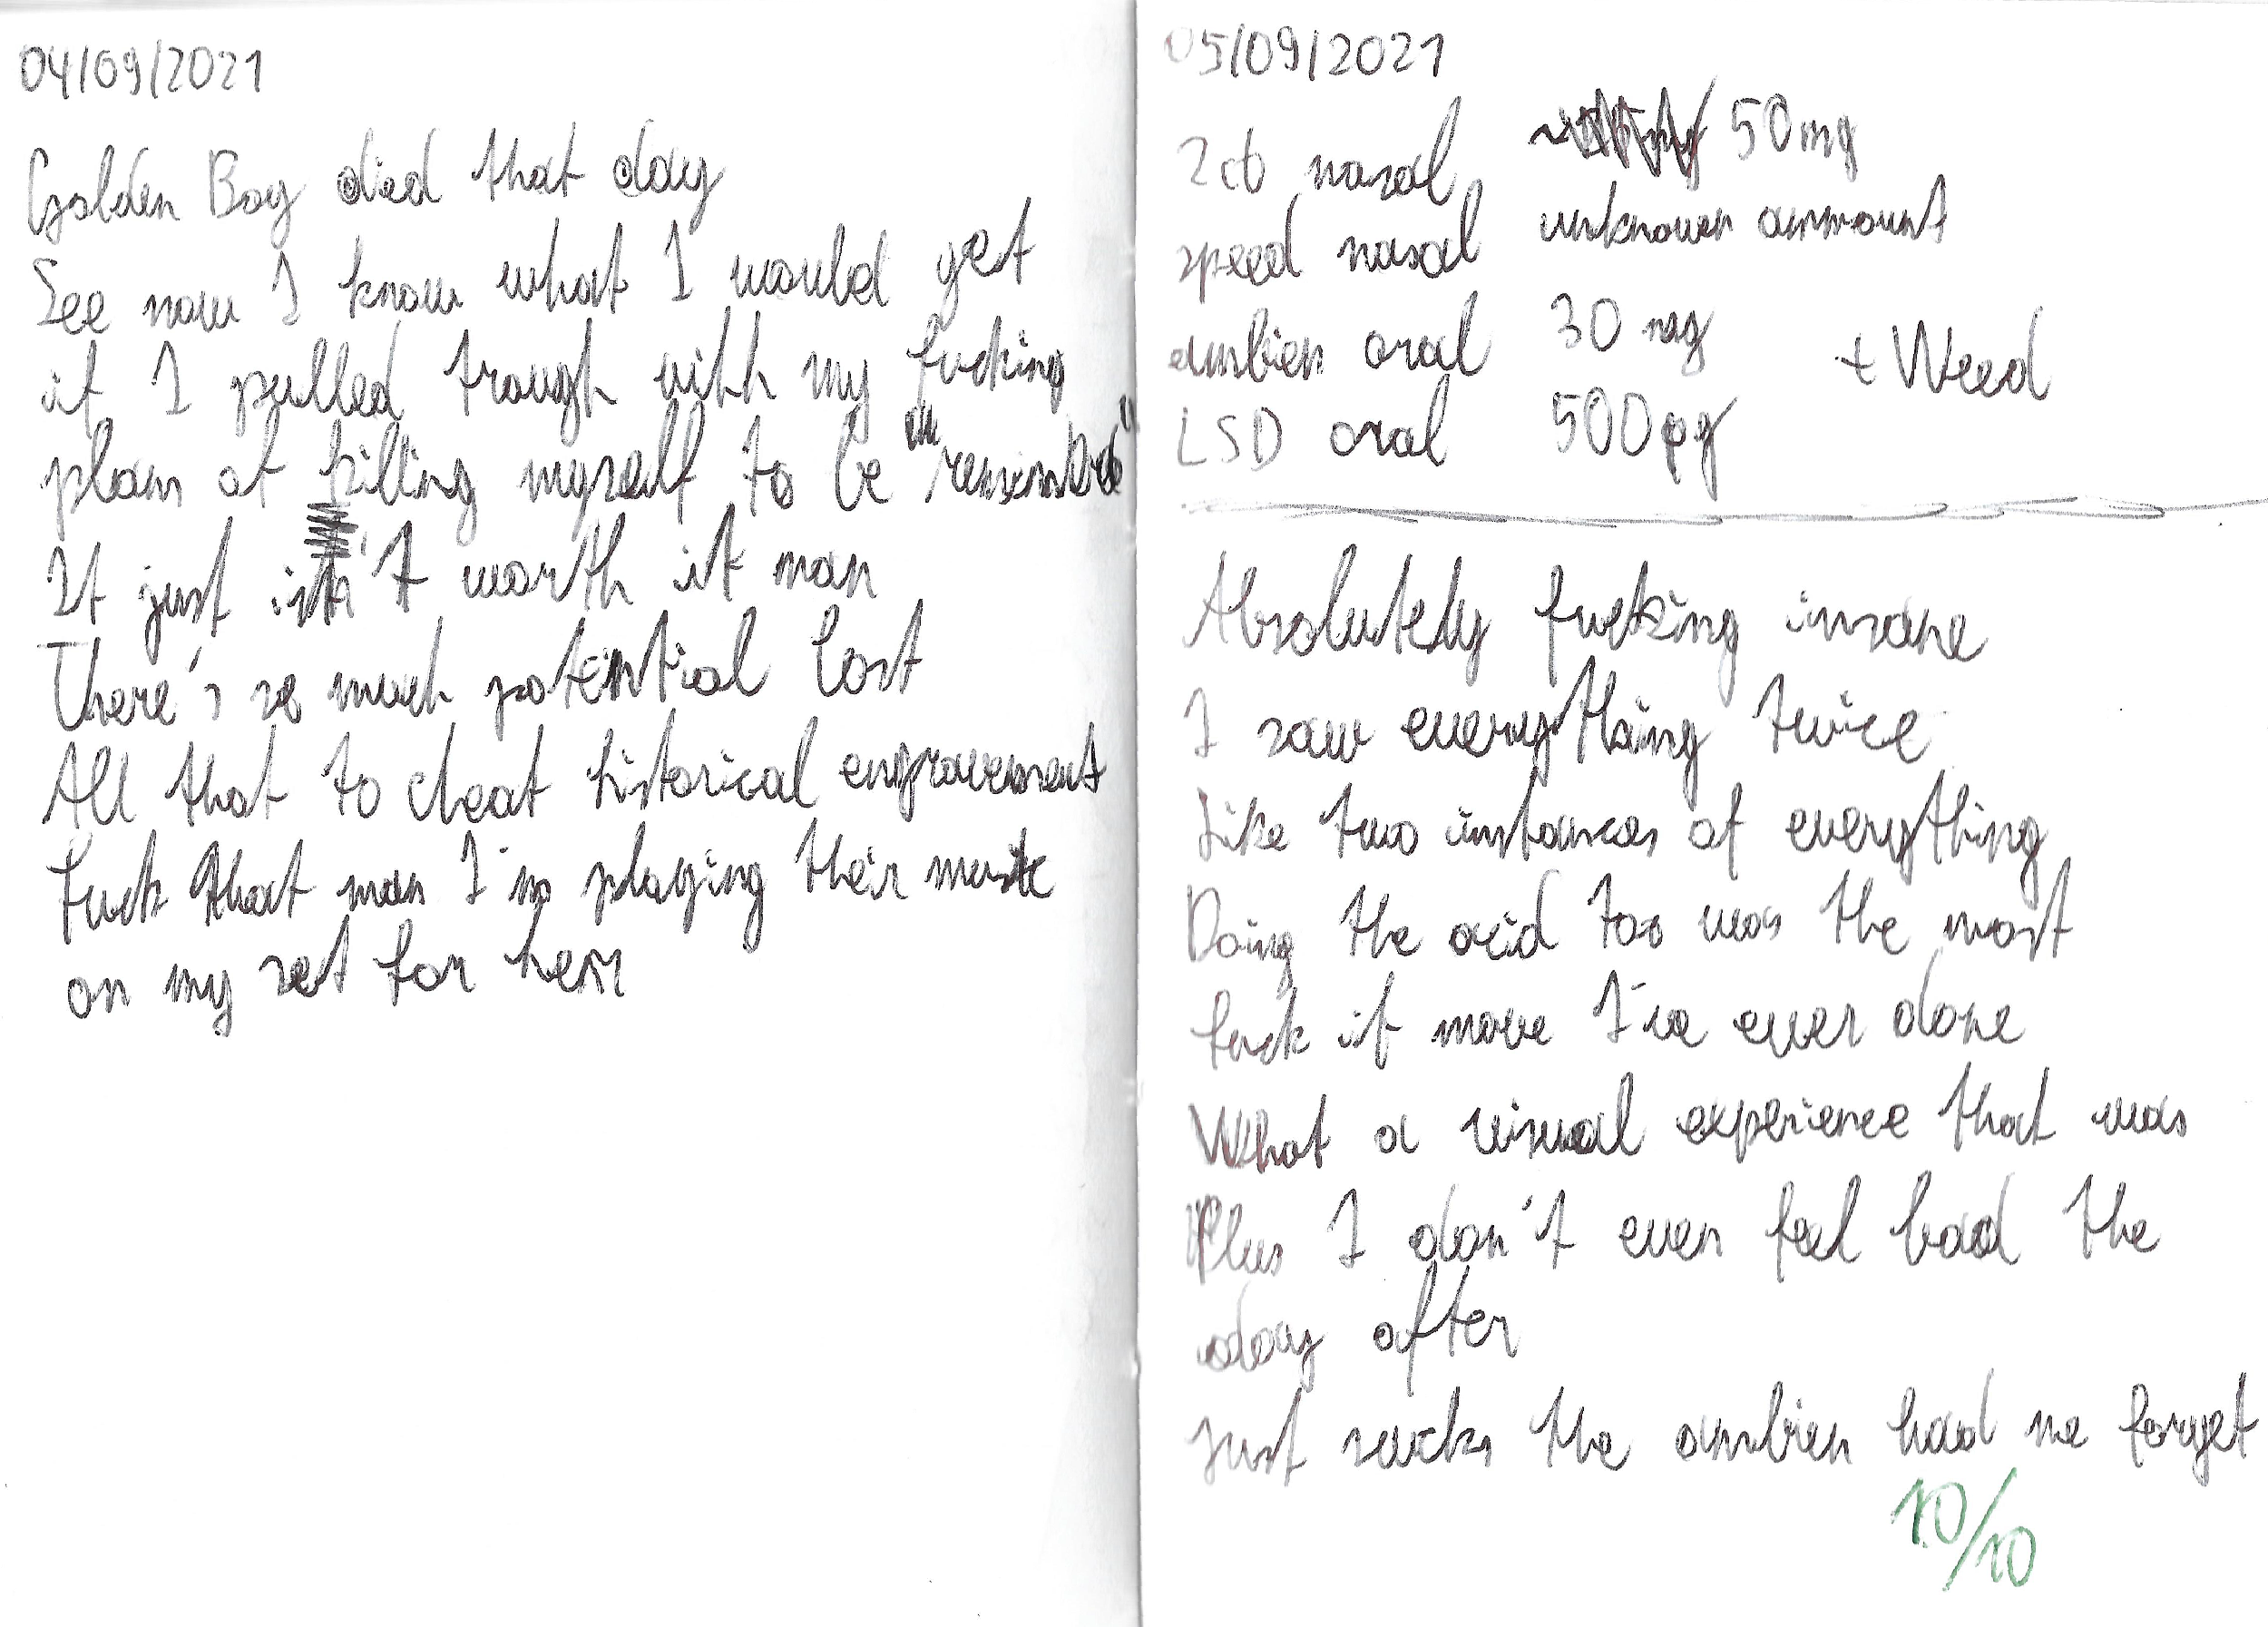 04/09/2021
Golden Boy died that day
See now I know what I would get
if I pulled trough with my fucking
plan of killing myself to be "remembered"
It just isn't worth it man
There's so much potential lost
All that to cheat historical engravement
Fuck that man I'm playing their music
on my set for hem
05/09/2021
2cb nasal 50mg
speed nasal unknown ammount
ambien oral 30 mg + Weed
LSD oral 500µg
Absolutely fucking insane
I saw everything twice
Like two instances of everything
Doing the acid too was the most
fuck it move I've ever done
What a visual experience that was
Plus I don't even feel bad the
day after
Just sucks the ambien had me forget
10/10